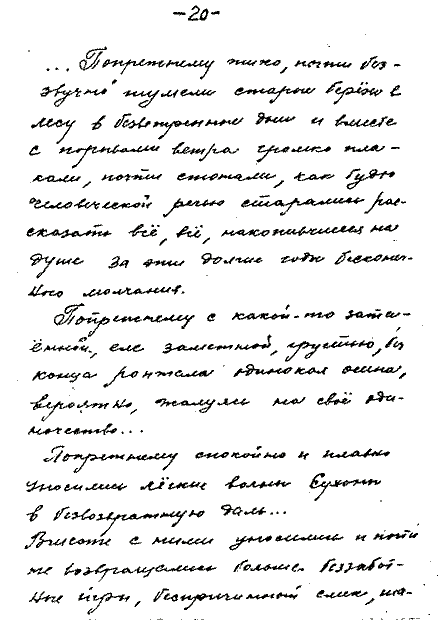 -20-
... Попрежнему тихо, почти без-
звучно шумели старые берёзы в
лесу в безветренные дни и вместе
с порывами ветра громко пла-
кали, почти стонали, как будто
человеческой речью старались рас-
сказать всё, всё, накопившееся на
душе за эти долгие годы бесконеч-
ного молчания.
Попрежнему с какой-то зата-
ённой, еле заметной, грустью, без
конца роптала одинокая осина,
вероятно, жалуясь на своё оди-
ночество...
Попрежнему спокойно и плавно
уносились лёгкие волны Сухоны
в безвозвратную даль...
Вместе с ними уносились и
не возвращались больше беззабот-
ные игры, беспричинный смех, ша-